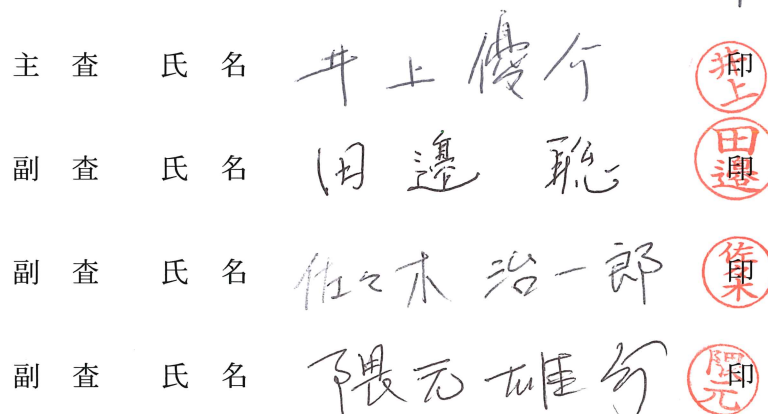 主 査 氏 名 井上優介 印 井上
副 査 氏 名 田邊 聡 印 田邊
副 査 氏 名 佐々木治一郎 印 佐々木
副 査 氏 名 隈元雄介 印 隈元